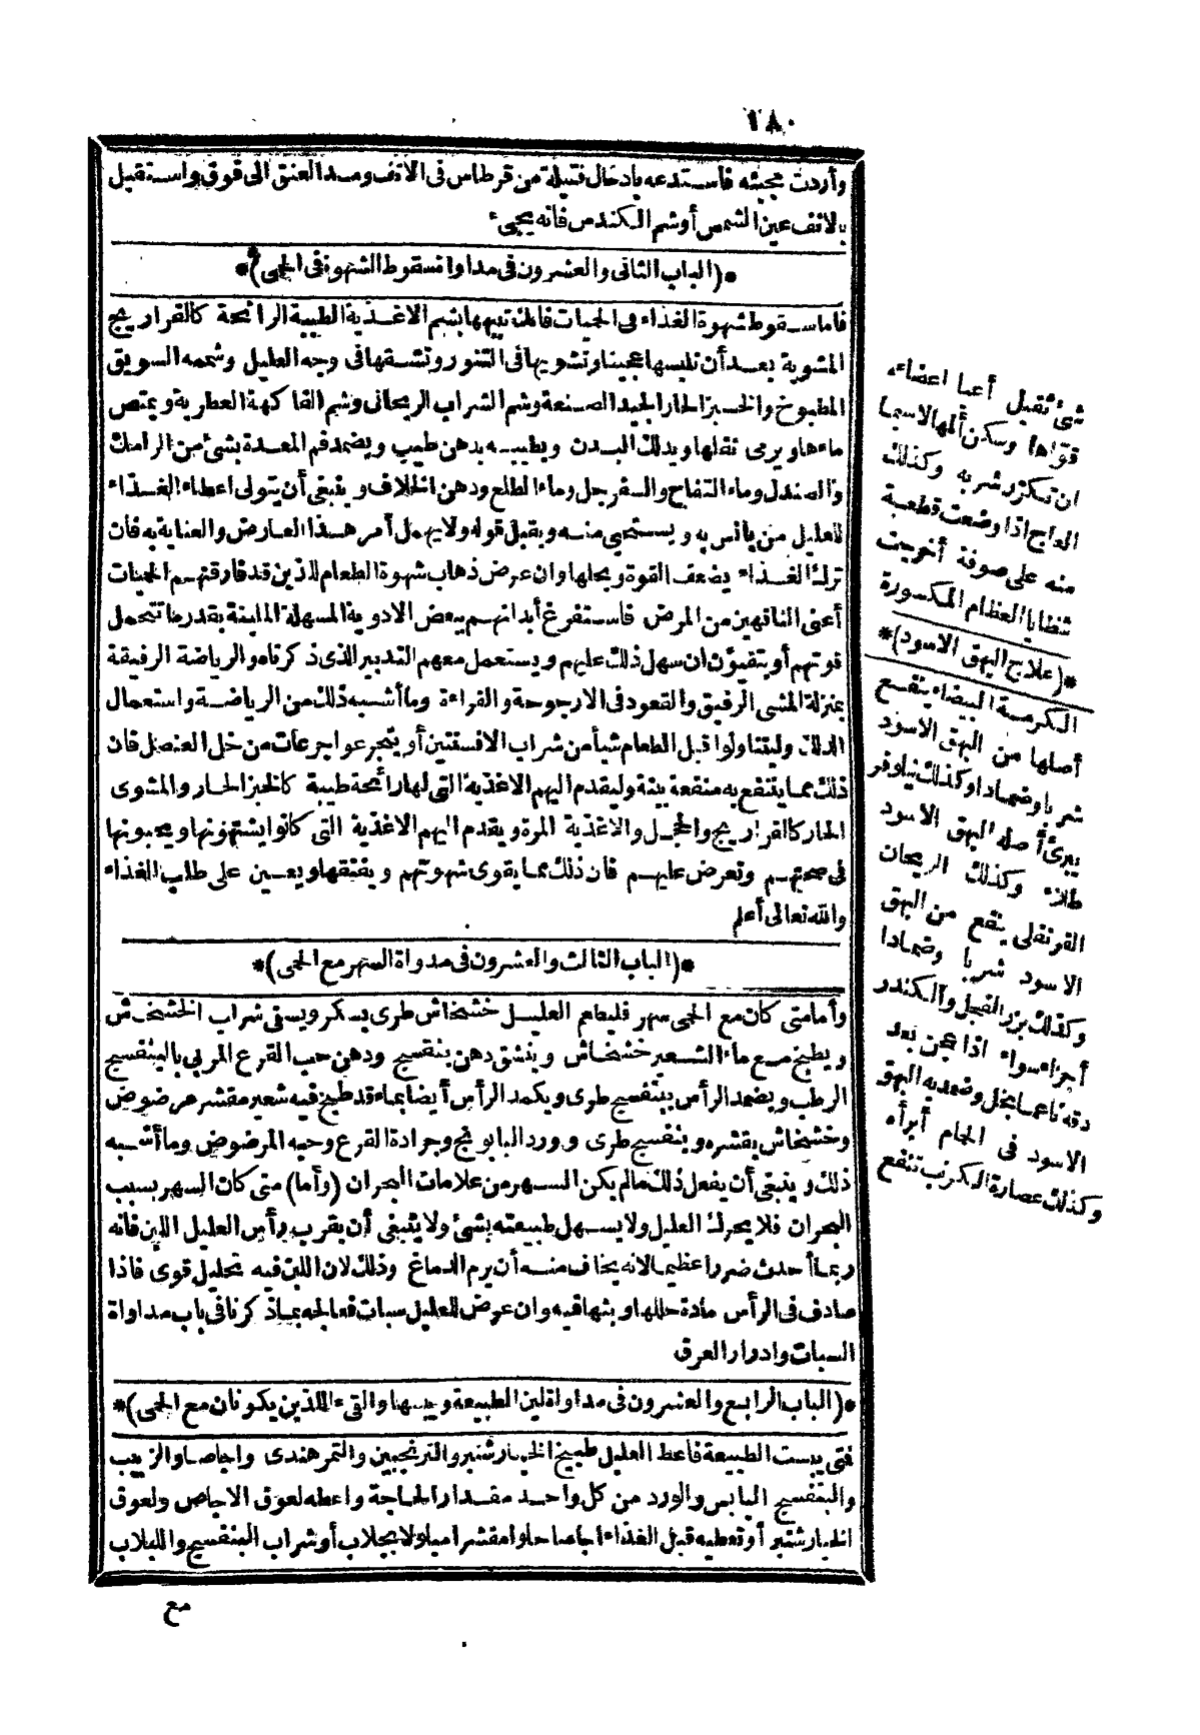 ٢٨٠
وأردت مجيئه فاستدعه بادخال فتيلة من قرطاس فى الانف ومد العنق الى فوق واستقبل
بالانف عين الشمس أو شم الكندس فانه يجىء
*(الباب الثانى والعشرون فى مداواة سقوط الشهوة فى الحمى)*
فاما سقوط شهوة الغذاء فى الحميات فانك تنبهها بشم الاغذية الطيبة الرائحة كالقراريج
المشوية بعد أن تلبسها عجينا وتشويها فى التنور وتشقها فى وجه العليل وشممه السويق
المطبوخ والخبز الحار الجيد الصنعة وشم الشراب الريحانى وشم الفاكهة العطرية ويمتص
ماءها ويرمى ثفلها ويدلك البدن ويطيبه بدهن طيب ويضمد فم المعدة بشئ من الرامك
والصندل وماء التفاح والسفرجل وماء الطلع ودهن الخلاف وينبغى أن يتولى اعطاء الغذاء
للعليل من يانس به ويستحيى منه ويقبل قوله ولا يهمل أمر هذا العارض والعناية به فان
ترك الغذاء يضعف القوة ويحلها وان عرض ذهاب شهوة الطعام للذين قد فارقتهم الحميات
أعنى الناقهين من المرض فاستفرغ أبدانهم ببعض الادوية المسهلة الملينة بقدر ما تحتمل
قوتهم أو يتقيؤن ان سهل ذلك عليهم ويستعمل معهم التدبير الذى ذكرناه والرياضة الرفيقة
بمنزلة المشى الرفيق والقعود فى الارجوحة والقراءة وما أشبه ذلك من الرياضة واستعمال
الدلك وليتناولوا قبل الطعام شيأ من شراب الافسنتين أو يتجرعوا جرعات من خل العنصل فان
ذلك مما ينتفع به منفعة بينة وليقدم اليهم الاغذية التى لها رائحة طيبة كالخبز الحار والمشوى
الحار كالقراريج والحجل والاغذية المرة ويقدم اليهم الاغذية التى كانوا يشتهونها ويحبونها
فى صحتهم وتعرض عليهم فان ذلك مما يقوى شهوتهم ويفتقها ويعين على طلب الغذاء
والله تعالى أعلم
*(الباب الثالث والعشرون فى مدواة السهر مع الحمى)*
وأما متى كان مع الحمى سهر فليطعم العليل خشخاش طرى بسكر ويسقى شراب الخشخاش
ويطبخ مع ماء الشعير خشخاش وينشق دهن بنفسج ودهن حب القرع المربى بالبنفسج
الرطب ويضمد الرأس ببنفسج طرى ويكمد الرأس أيضا بماء قد طبخ فيه شعير مقشر مرضوض
وخشخاش بقشره وبنفسج طرى وورد البابونج وجرادة القرع وحبه المرضوض وما أشبه
ذلك وينبغى أن يفعل ذلك مالم يكن السهر من علامات البحران (وأما) متى كان السهر بسبب
البحران فلا يحرك العليل ولا يسهل طبيعته بشئ ولا ينبغى أن يقرب رأس العليل اللبن فانه
ربما أحدث ضررا عظيما لانه يخاف منه أن يرم الدماغ وذلك لان اللبن فيه تحليل قوى فاذا
صادف فى الرأس مادة حللها وبثها فيه وان عرض للعليل سبات فعالجه بما ذكرنا فى باب مداواة
السبات وادوار العرق
*(الباب الرابع والعشرون فى مداواة لين الطبيعة ويبسها والقىء اللذين يكونان مع الحمى)*
فتى يبست الطبيعة فاعط العليل طبيخ الخيارشنبر والترنجبين والتمر هندى واجاصا والزبيب
والبنفسج اليابس والورد من كل واحد مقدار الحاجة واعطه لعوق الاجاص ولعوق
الخيارشنبر أو تعطيه قبل الغذاء اجاصا حلوا مقشرا مبلولا بجلاب أو شراب البنفسج واللبلاب
مع
شئ ثقيل أعيا اعضاءه
قواها وسكن ألمها لاسيما
ان تكرر شربه وكذلك
العاج اذا وضعت قطعة
منه على صوفة أخرجت
شظايا العظام المكسورة
*(علاج البهق الاسود)*
الكرمة البيضاء ينفع
أصلها من البهق الاسود
شربا وضمادا وكذلك نيلوفر
يبرئ أصله البهق الاسود
طلاء وكذلك الريحان
القرنفلى ينفع من البهق
الاسود شربا وضمادا
وكذلك بزر الفجل والكندر
أجزاء سواء اذا عجن بعد
دقه ناعما بخل وضمد به البهق
الاسود فى الحمام أبرأه
وكذلك عصارة الكرنب تنفع